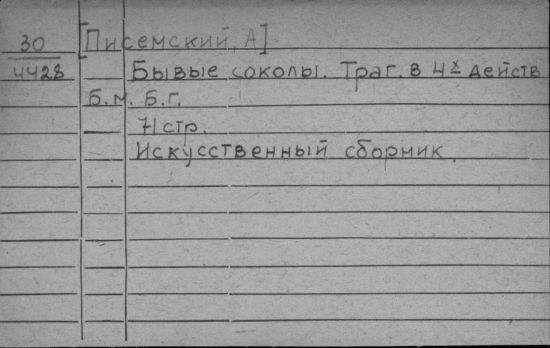 30 [Писемский, А]
4428 Бывые соколы. Траг. в 4х действ
б.м. б.г.
71 стр.
Искусственный сборник.